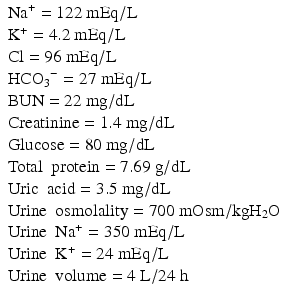 Na⁺ = 122 mEq/L
K⁺ = 4.2 mEq/L
Cl = 96 mEq/L
HCO₃⁻ = 27 mEq/L
BUN = 22 mg/dL
Creatinine = 1.4 mg/dL
Glucose = 80 mg/dL
Total protein = 7.69 g/dL
Uric acid = 3.5 mg/dL
Urine osmolality = 700 mOsm/kgH₂O
Urine Na⁺ = 350 mEq/L
Urine K⁺ = 24 mEq/L
Urine volume = 4 L/24 h